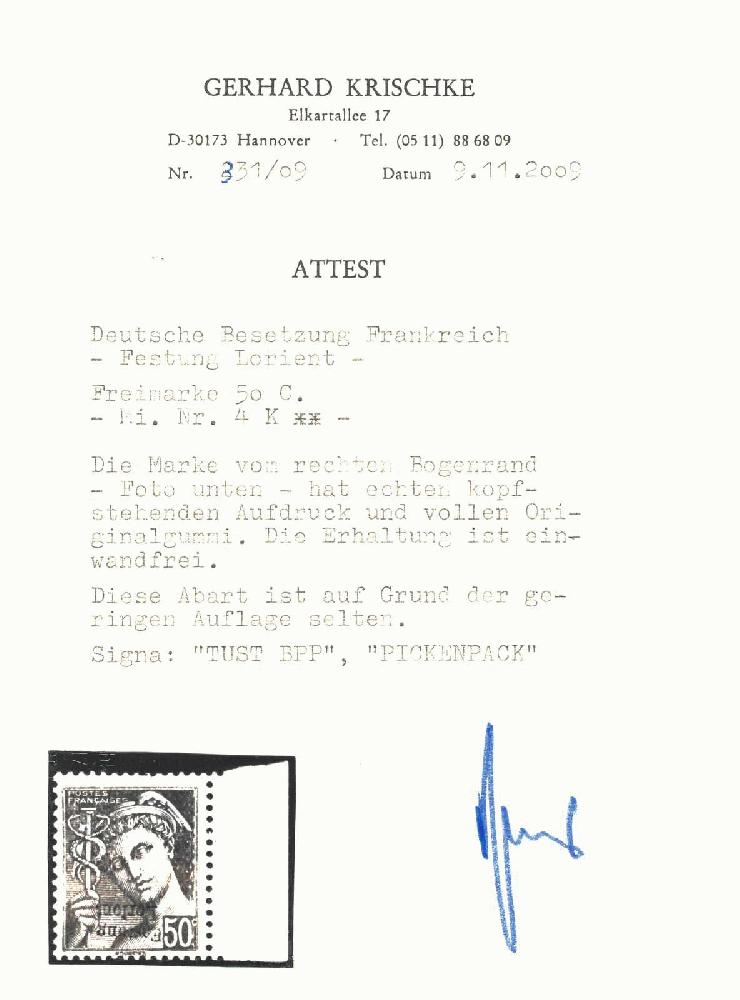 GERHARD KRISCHKE
Elkartallee 17
D-30173 Hannover · Tel. (05 11) 88 68 09
Nr. 331/09 Datum 9.11.2009
ATTEST
Deutsche Besetzung Frankreich
- Festung Lorient -
Freimarke 50 C.
- Mi. Nr. 4 K ** -
Die Marke vom rechten Bogenrand
- Foto unten - hat echten kopf-
stehenden Aufdruck und vollen Ori-
ginalgummi. Die Erhaltung ist ein-
wandfrei.
Diese Abart ist auf Grund der ge-
ringen Auflage selten.
Signa: "TUST BPP", "PICKENPACK"
POSTES
FRANÇAISES
Festung
Lorient
50c